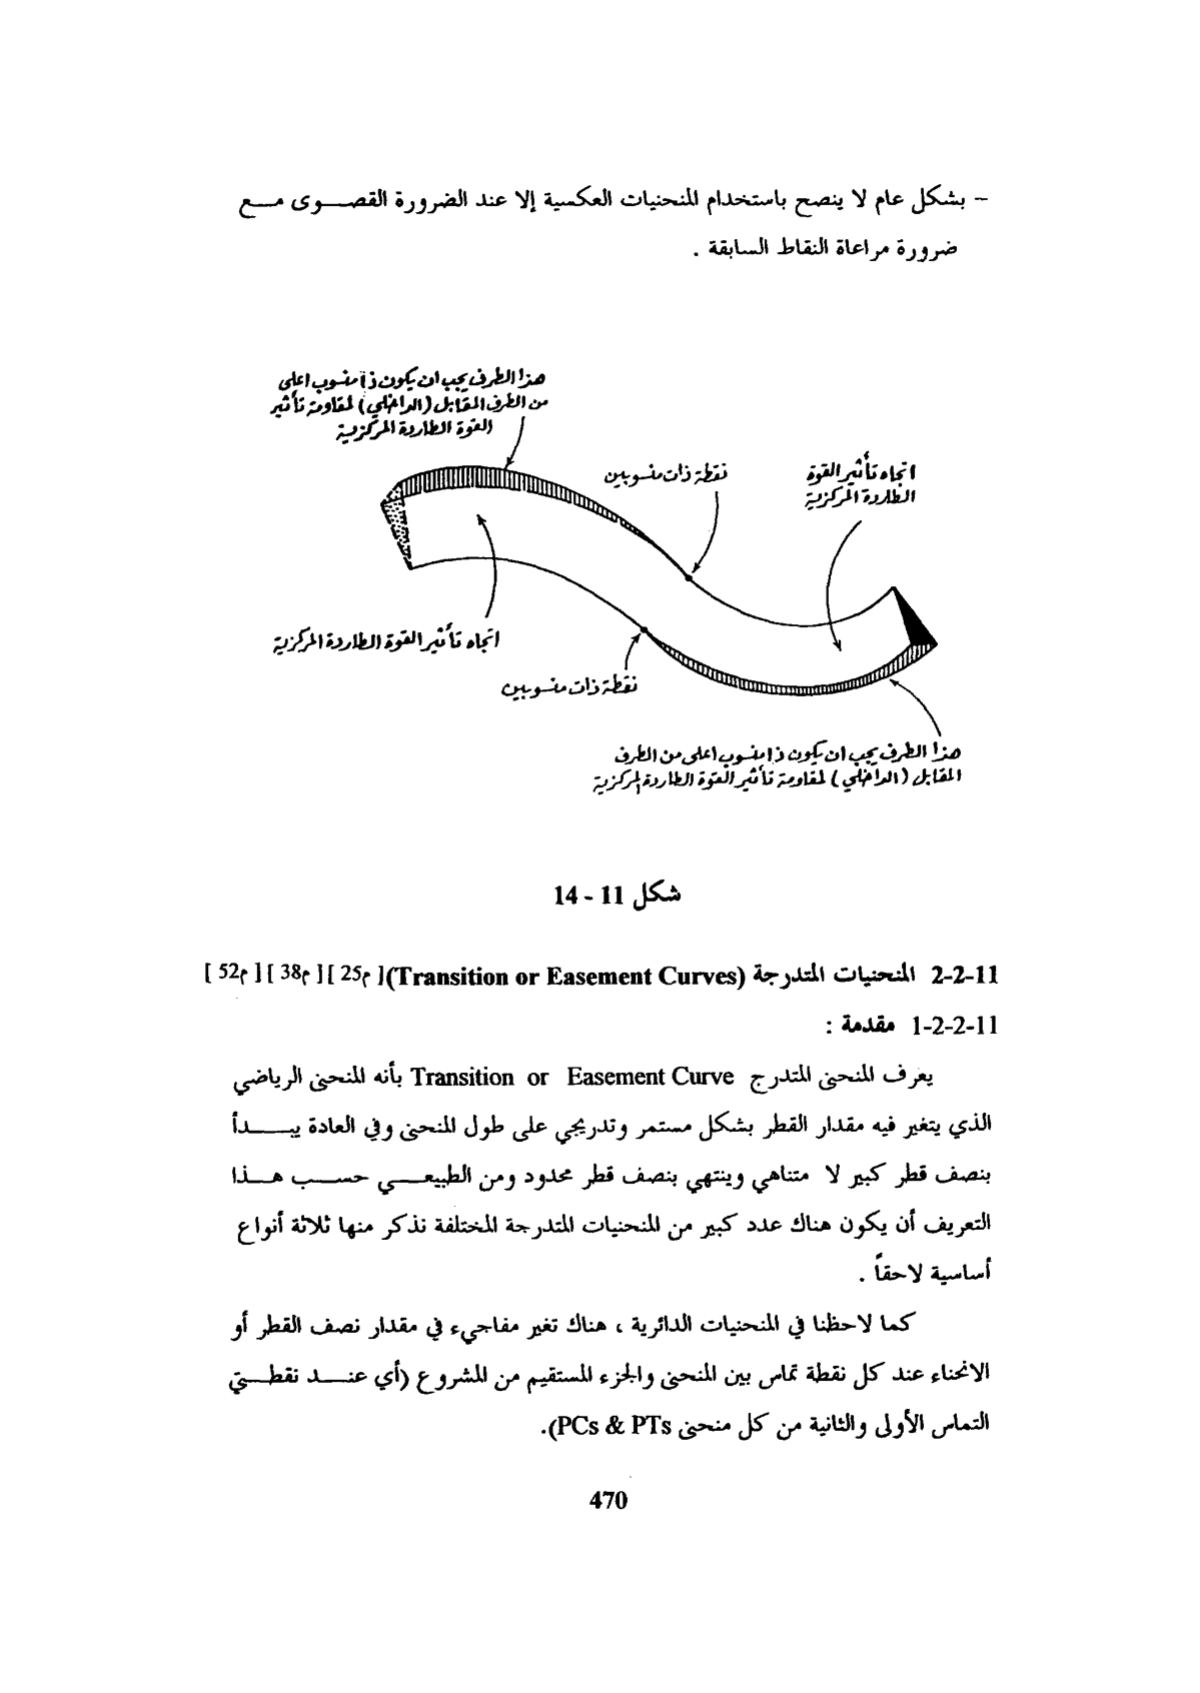 – بشكل عام لا ينصح باستخدام المنحنيات العكسية إلا عند الضرورة القصوى مع
ضرورة مراعاة النقاط السابقة .
هذا الطرف يجب ان يكون ذا منسوب اعلى
من الطرف المقابل (الداخلي) لمقاومة تأثير
القوة الطاردة المركزية
نقطة ذات منسوبين
اتجاه تأثير القوة
الطاردة المركزية
اتجاه تأثير القوة الطاردة المركزية
نقطة ذات منسوبين
هذا الطرف يجب ان يكون ذا منسوب اعلى من الطرف
المقابل (الداخلي) لمقاومة تأثير القوة الطاردة المركزية
شكل 11 - 14
2-2-11 المنحنيات المتدرجة (Transition or Easement Curves)[ م25 ][ م38 ][ م52 ]
1-2-2-11 مقدمة :
يعرف المنحنى المتدرج Transition or Easement Curve بأنه المنحنى الرياضي
الذي يتغير فيه مقدار القطر بشكل مستمر وتدريجي على طول المنحنى وفي العادة يبدأ
بنصف قطر كبير لا متناهي وينتهي بنصف قطر محدود ومن الطبيعي حسب هذا
التعريف أن يكون هناك عدد كبير من المنحنيات المتدرجة المختلفة نذكر منها ثلاثة أنواع
أساسية لاحقاً .
كما لاحظنا في المنحنيات الدائرية ، هناك تغير مفاجيء في مقدار نصف القطر أو
الانحناء عند كل نقطة تماس بين المنحنى والجزء المستقيم من المشروع (أي عند نقطتي
التماس الأولى والثانية من كل منحنى PCs & PTs).
470